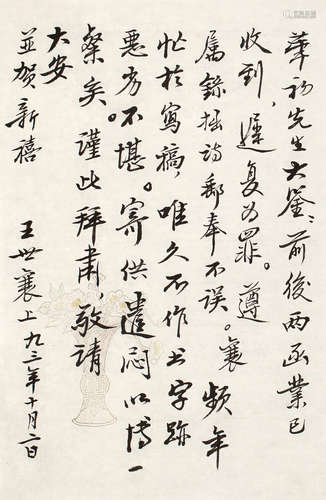 華初先生大鉴：前後两函業已
收到，遲复为罪。遵
属錄拙詩郵奉不误。襄频年
忙於寫稿，唯久不作书字跡
恶劣不堪。寄供遣闷以博一
粲矣。谨此拜肅，敬請
大安
並贺新禧
王世襄上九三年十月二日